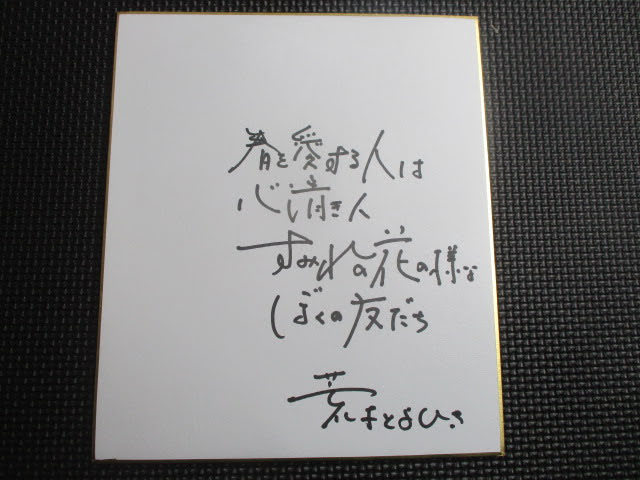 春を愛する人は
心清き人
すみれの花の様な
ぼくの友だち
荒木とよひさ